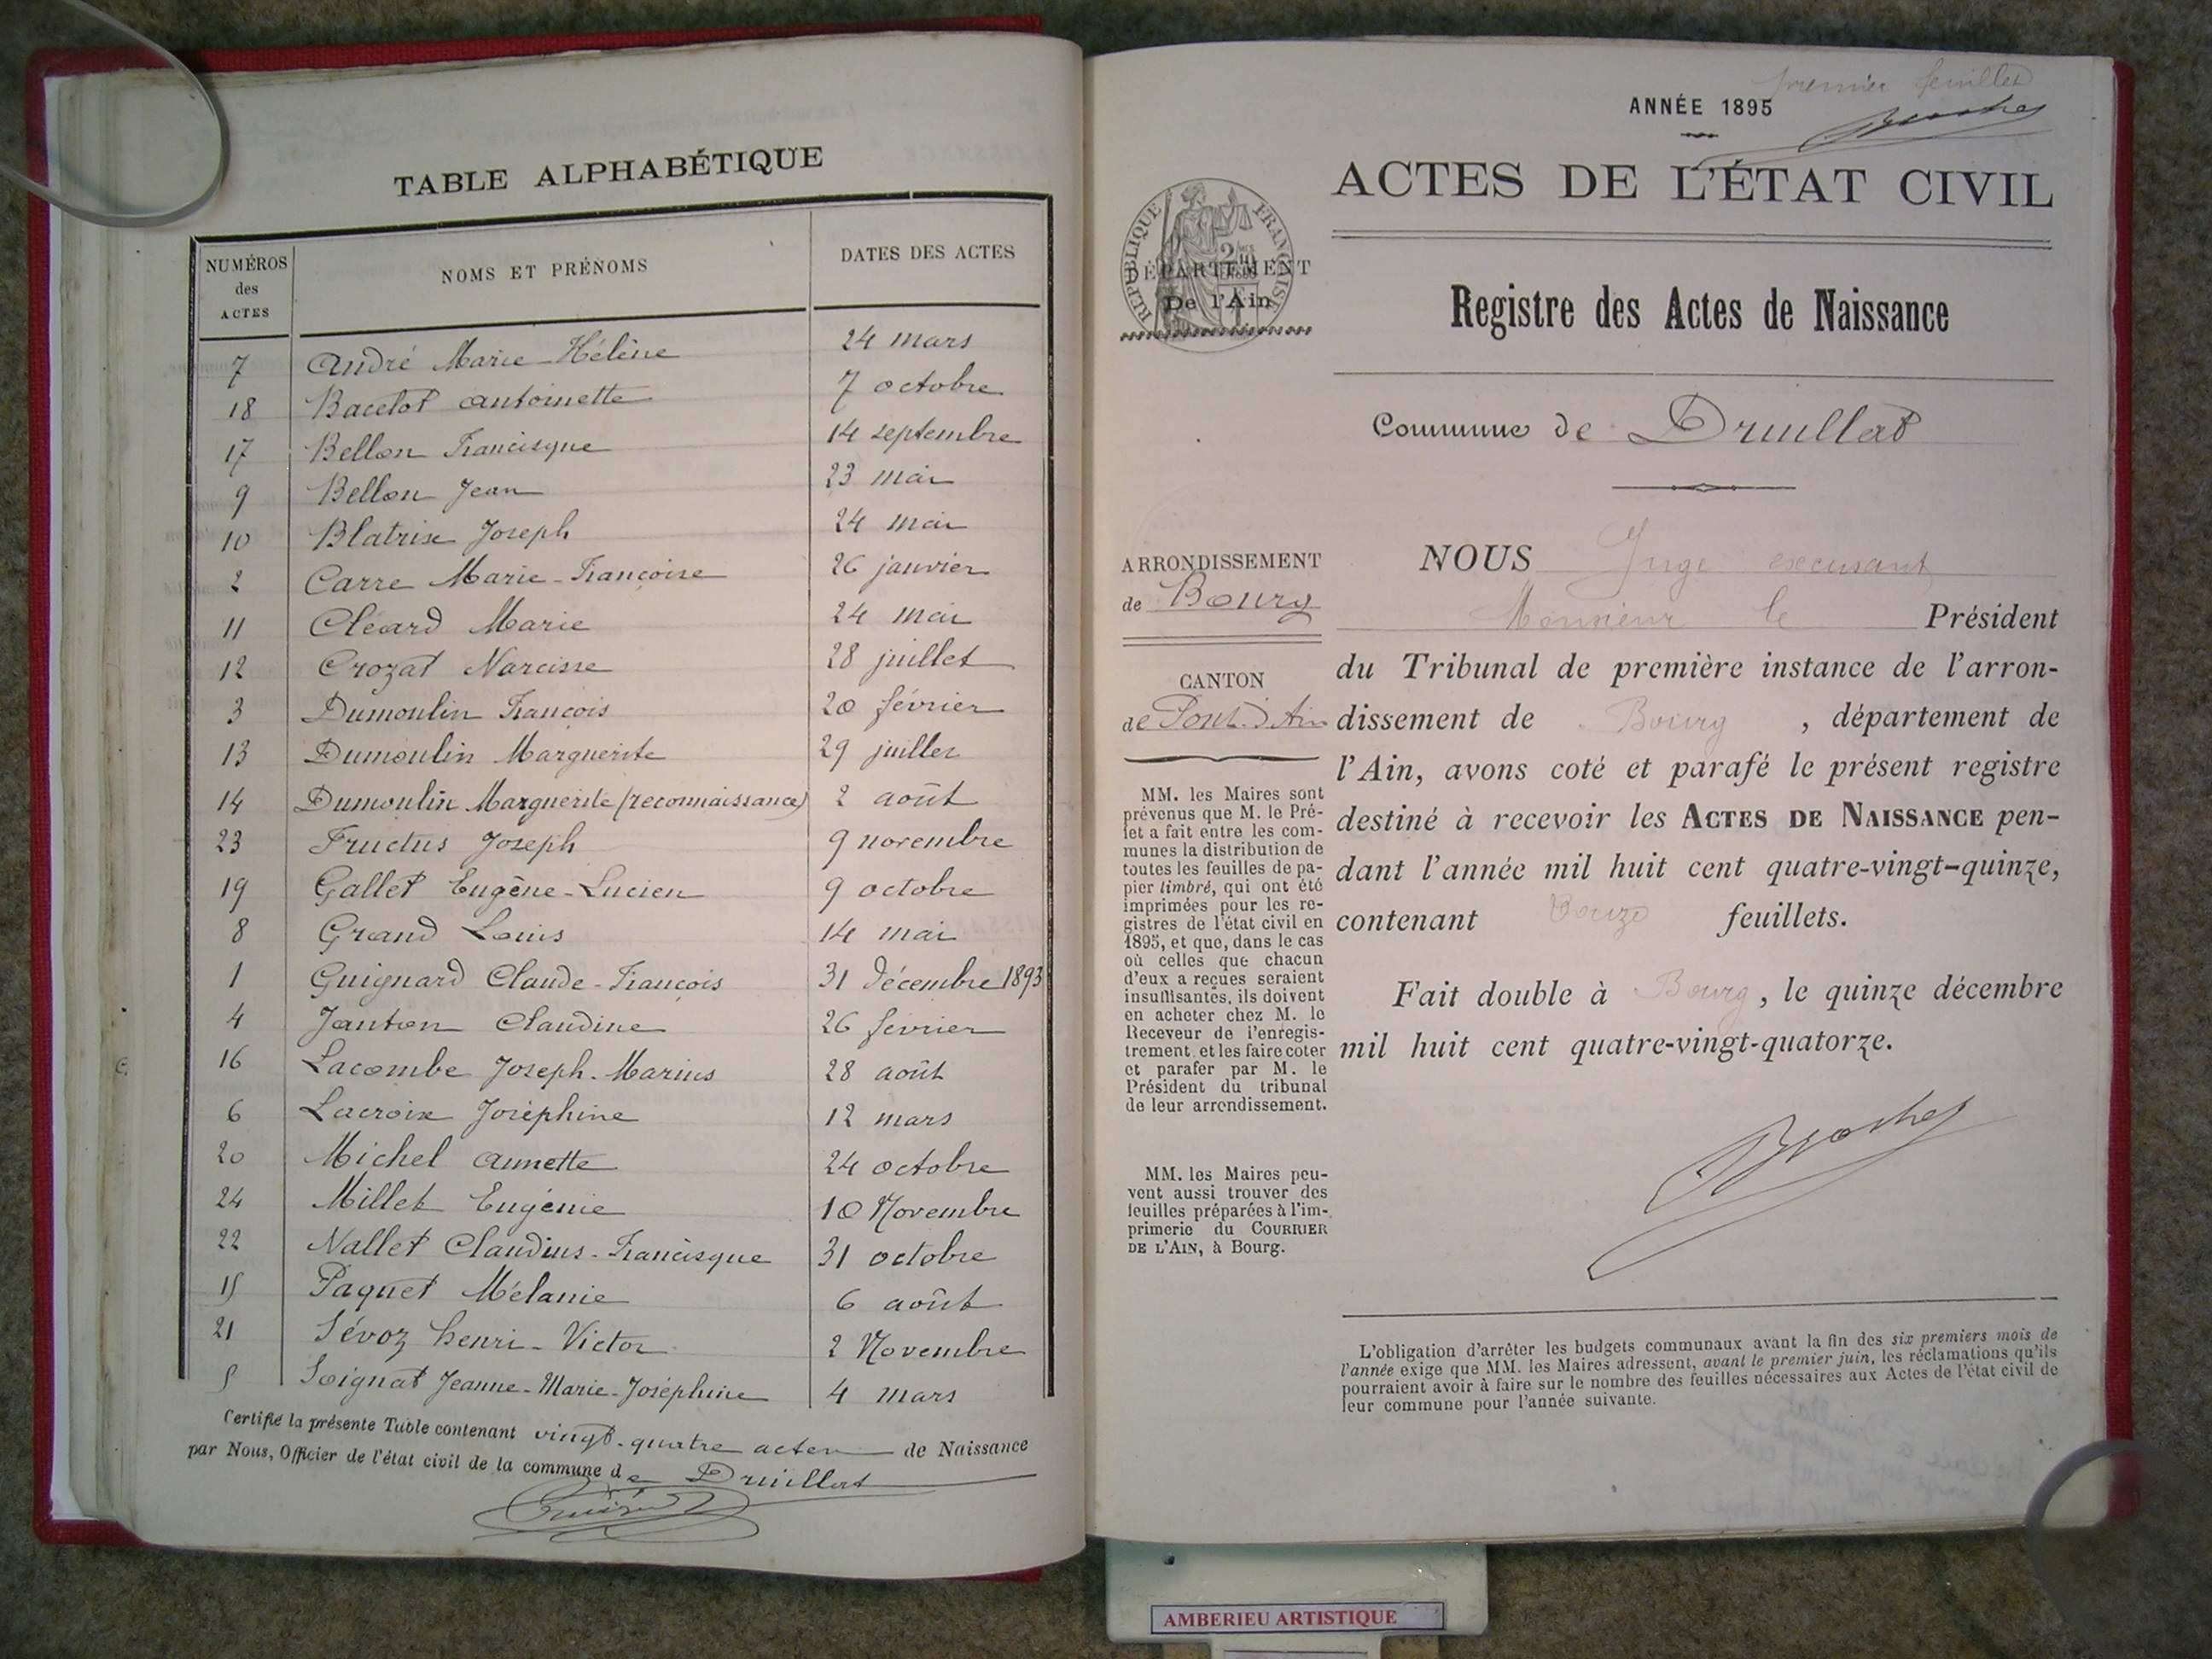 TABLE ALPHABÉTIQUE
NUMÉROS des ACTES NOMS ET PRÉNOMS DATES DES ACTES
7 André Marie-Hélène 24 mars
18 Bacelot Antoinette 7 octobre
17 Bellon Francisque 14 septembre
9 Bellon Jean 23 mai
10 Blatrix Joseph 24 mai
2 Carre Marie-Françoise 26 janvier
11 Cléard Marie 24 mai
12 Crozat Narcisse 28 juillet
3 Dumoulin François 20 février
13 Dumoulin Marguerite 29 juillet
14 Dumoulin Marguerite (reconnaissance) 2 août
23 Fructus Joseph 9 novembre
19 Gallet Eugène-Lucien 9 octobre
8 Grand Louis 14 mai
1 Guignard Claude-François 31 décembre 1893
4 Janton Claudine 26 février
16 Lacombe Joseph-Marius 28 août
6 Lacroix Joséphine 12 mars
20 Michel Annette 24 octobre
24 Millet Eugénie 10 Novembre
22 Nallet Claudius-Francisque 31 octobre
15 Paquet Mélanie 6 août
21 Sévoz henri-Victor 2 Novembre
5 Soignat Jeanne-Marie-Joséphine 4 mars
Certifié la présente Table contenant vingt-quatre actes de Naissance
par Nous, Officier de l'état civil de la commune de Druillat
premier feuillet
ANNÉE 1895
ACTES DE L'ÉTAT CIVIL
RÉPUBLIQUE FRANÇAISE
DÉPARTEMENT
De l'Ain
Registre des Actes de Naissance
Commune de Druillat
ARRONDISSEMENT
de Bourg
CANTON
de Pont-d'Ain
MM. les Maires sont
prévenus que M. le Pré-
fet a fait entre les com-
munes la distribution de
toutes les feuilles de pa-
pier timbré, qui ont été
imprimées pour les re-
gistres de l'état civil en
1895, et que, dans le cas
où celles que chacun
d'eux a reçues seraient
insuffisantes, ils doivent
en acheter chez M. le
Receveur de l'enregis-
trement et les faire coter
et parafer par M. le
Président du tribunal
de leur arrondissement.
MM. les Maires peu-
vent aussi trouver des
feuilles préparées à l'im-
primerie du COURRIER
DE L'AIN, à Bourg.
NOUS Juge excusant
Monsieur le Président
du Tribunal de première instance de l'arron-
dissement de Bourg, département de
l'Ain, avons coté et parafé le présent registre
destiné à recevoir les ACTES DE NAISSANCE pen-
dant l'année mil huit cent quatre-vingt-quinze,
contenant feuillets.
Fait double à Bourg, le quinze décembre
mil huit cent quatre-vingt-quatorze.
L'obligation d'arrêter les budgets communaux avant la fin des six premiers mois de
l'année exige que MM. les Maires adressent, avant le premier juin, les réclamations qu'ils
pourraient avoir à faire sur le nombre des feuilles nécessaires aux Actes de l'état civil de
leur commune pour l'année suivante.
AMBERIEU ARTISTIQUE